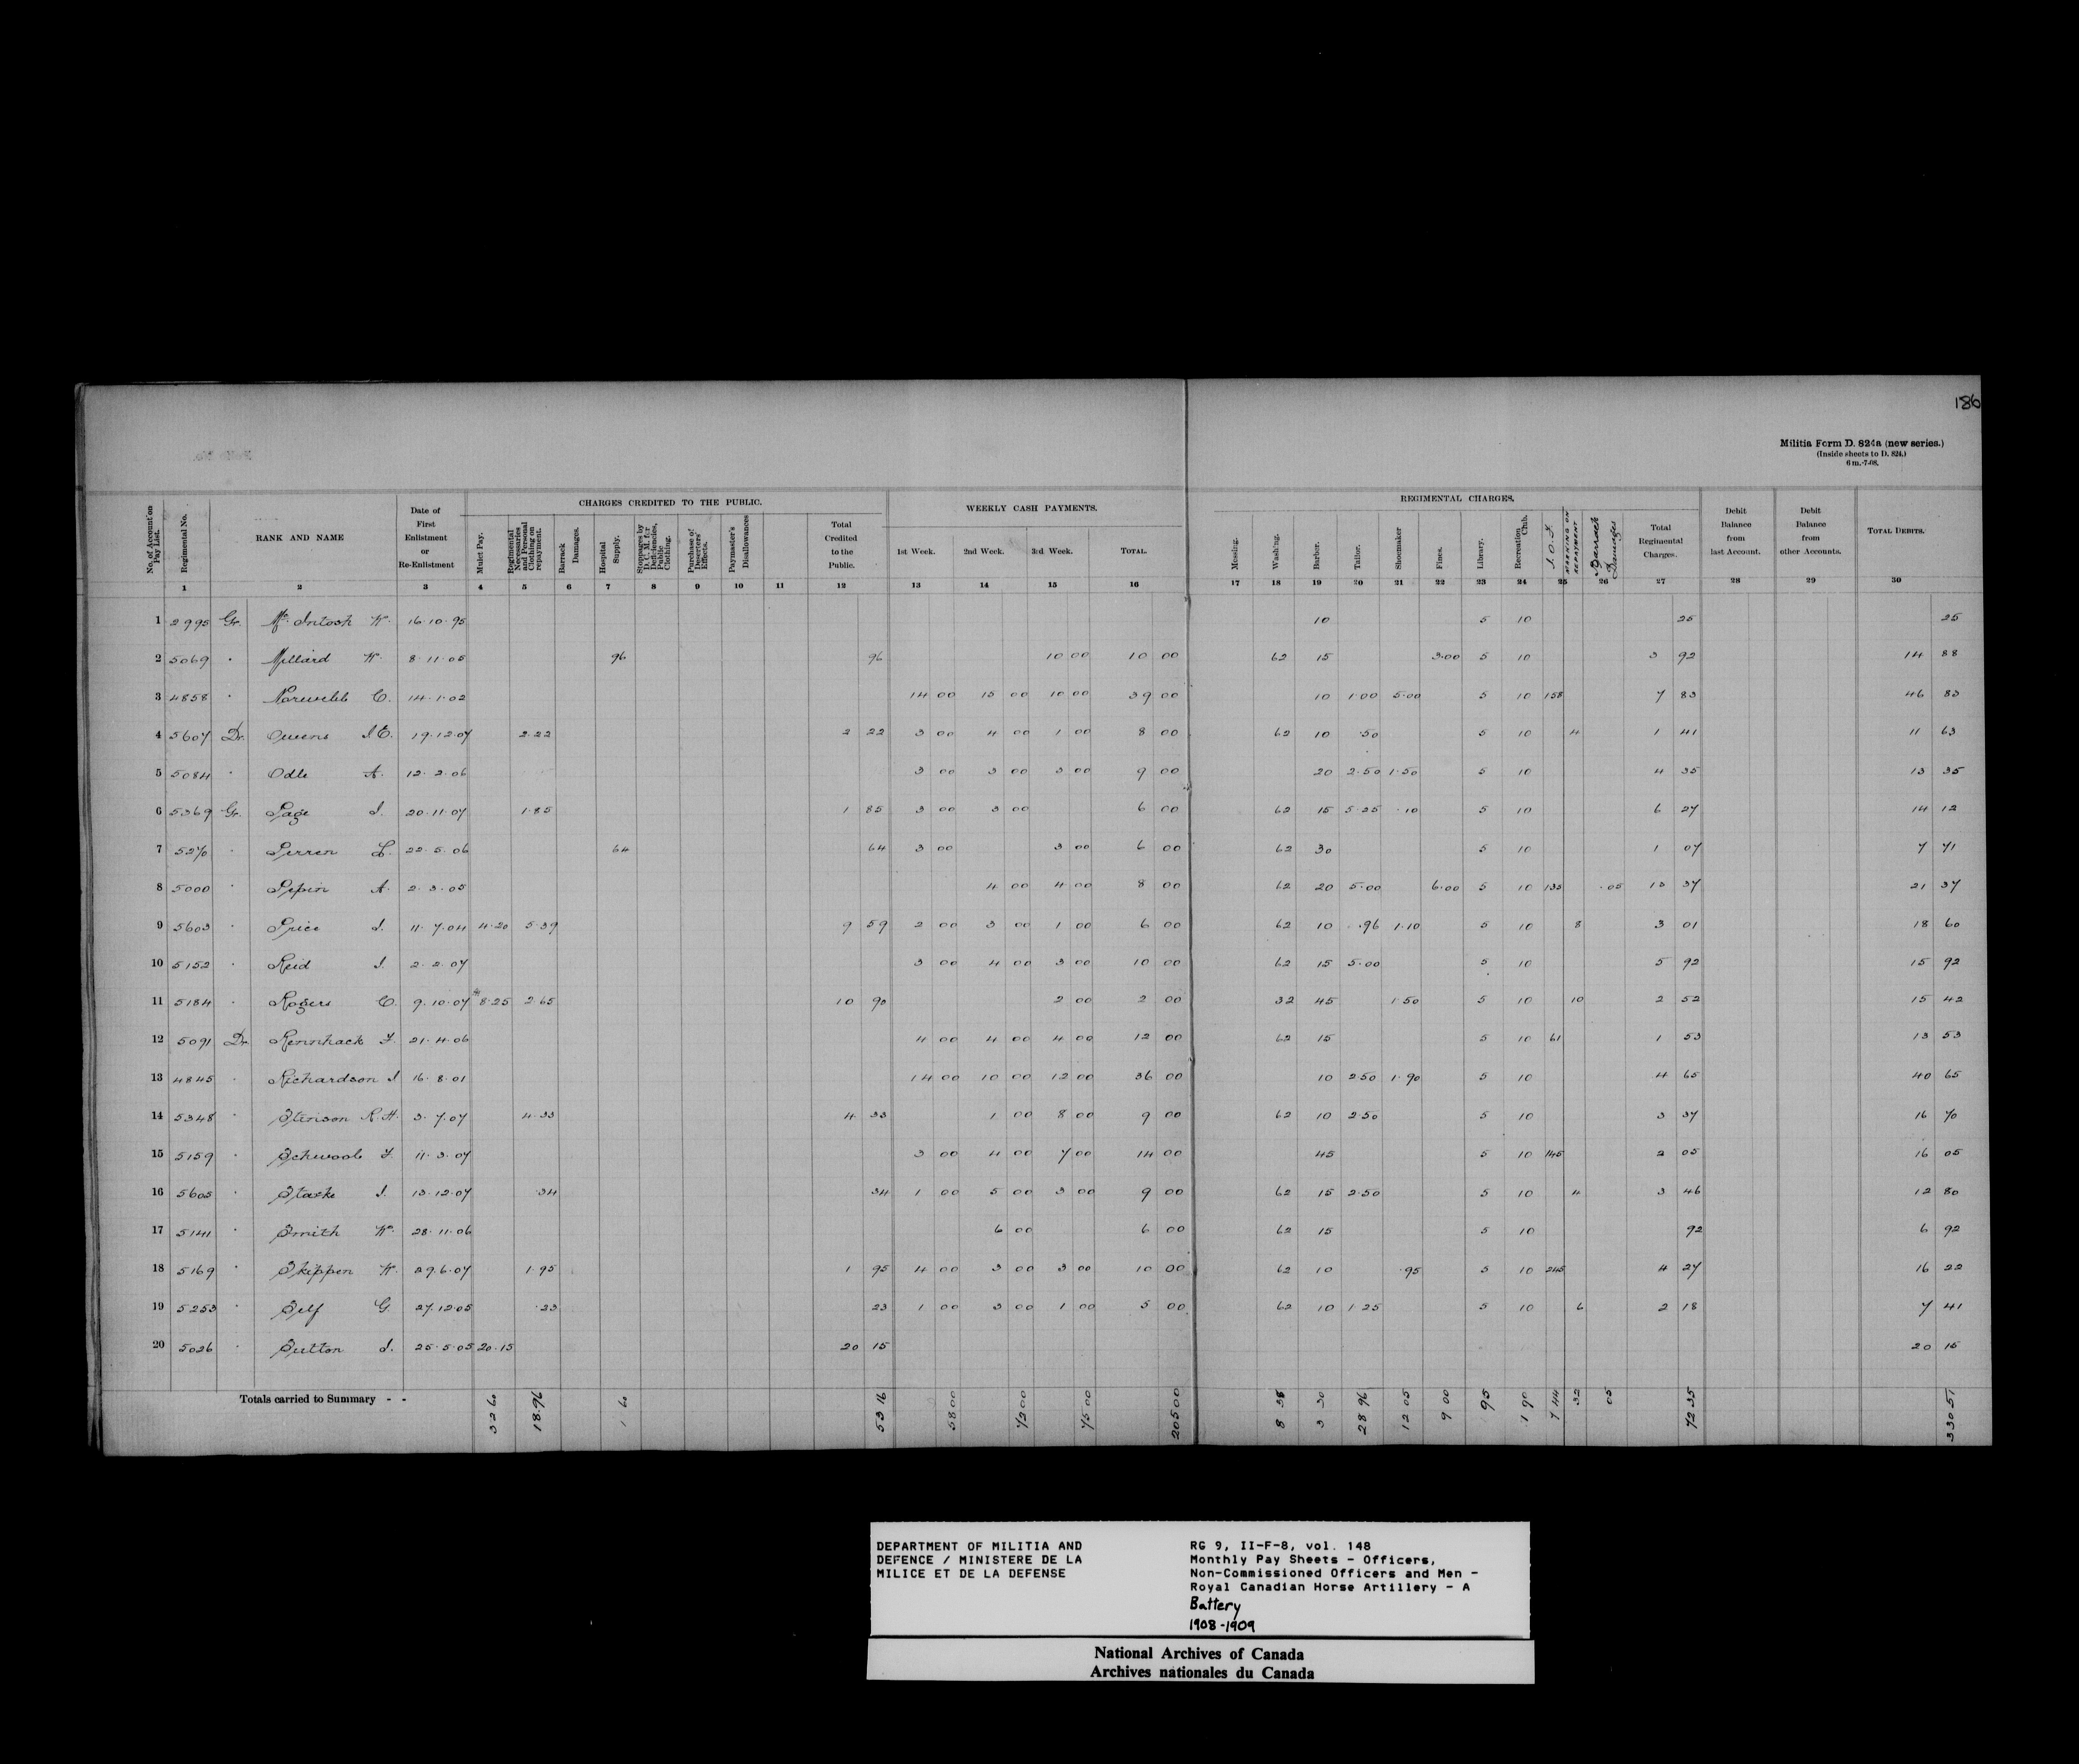 186
Militia Form D. 824a (new series.)
(Inside sheets to D. 824.)
6 m.-7-08.
CHARGES CREDITED TO THE PUBLIC. WEEKLY CASH PAYMENTS. REGIMENTAL CHARGES.
No. of Account on Pay List. Regimental No. RANK AND NAME Date of First Enlistment or Re-Enlistment Mulct Pay. Regimental Necessaries and Personal Clothing on repayment. Barrack Damages. Hospital Supply. Stoppages by D. C. M. for Deficiencies, Public Clothing. Purchase of Deserters' Effects. Paymaster's Disallowances Total Credited to the Public. 1st Week. 2nd Week. 3rd Week. TOTAL. Messing. Washing. Barber. Tailor. Shoemaker Fines. Library. Recreation Club. REPAYMENT Barrack Damages Total Regimental Charges. Debit Balance from last Account. Debit Balance from other Accounts. TOTAL DEBITS.
1 2 3 4 5 6 7 8 9 10 11 12 13 14 15 16 17 18 19 20 21 22 23 24 25 26 27 28 29 30
1 2995 Gr. McIntosh W. 16·10·95 10 5 10 25 25
2 5069 " Millard W. 8·11·05 96 96 10 00 10 00 62 15 3·00 5 10 3 92 14 88
3 4858 " Norwebb C. 14·1·02 14 00 15 00 10 00 39 00 10 1·00 5·00 5 10 158 7 83 46 83
4 5607 Dr. Owens J.E. 19·12·07 2·22 2 22 3 00 4 00 1 00 8 00 62 10 ·50 5 10 4 1 41 11 63
5 5084 " Odle A. 12·2·06 3 00 3 00 3 00 9 00 20 2·50 1·50 5 10 4 35 13 35
6 5369 Gr. Page J. 20·11·07 1·85 1 85 3 00 3 00 6 00 62 15 5 25 ·10 5 10 6 27 14 12
7 5270 " Perren L. 22·5·06 64 64 3 00 3 00 6 00 62 30 5 10 1 07 7 71
8 5000 " Pepin A. 2·3·05 4 00 4 00 8 00 62 20 5·00 6·00 5 10 135 ·05 13 37 21 37
9 5603 " Price J. 11·7·04 4·20 5·39 9 59 2 00 3 00 1 00 6 00 62 10 ·96 1·10 5 10 8 3 01 18 60
10 5152 " Reid J. 2·2·07 3 00 4 00 3 00 10 00 62 15 5·00 5 10 5 92 15 92
11 5184 " Rogers C. 9·10·07 *8·25 2 65 10 90 2 00 2 00 32 45 1·50 5 10 10 2 52 15 42
12 5091 Dr. Rennhack F. 21·4·06 4 00 4 00 4 00 12 00 62 15 5 10 61 1 53 13 53
13 4845 " Richardson J 16·8·01 14 00 10 00 12 00 36 00 10 2 50 1·90 5 10 4 65 40 65
14 5348 " Stenson R.H. 3·7·07 4·33 4 33 1 00 8 00 9 00 62 10 2·50 5 10 3 37 16 70
15 5159 " Schwoob F. 11·3·07 3 00 4 00 7 00 14 00 45 5 10 145 2 05 16 05
16 5605 " Starke J. 13·12·07 ·34 34 1 00 5 00 3 00 9 00 62 15 2·50 5 10 4 3 46 12 80
17 5141 " Smith W. 28·11·06 6 00 6 00 62 15 5 10 92 6 92
18 5169 " Skippen W. 29·6·07 1·95 1 95 4 00 3 00 3 00 10 00 62 10 ·95 5 10 245 4 27 16 22
19 5253 " Self G. 27·12·05 ·23 23 1 00 3 00 1 00 5 00 62 10 1·25 5 10 6 2 18 7 41
20 5026 " Sutton J. 25·5·05 20·15 20 15 20 15
Totals carried to Summary - - 32 60 18.96 1 60 53 16 58 00 72 00 75 00 205 00 8 38 3 30 28 96 12 05 9 00 95 1 90 7 44 32 05 72 35 330 51
DEPARTMENT OF MILITIA AND
DEFENCE / MINISTERE DE LA
MILICE ET DE LA DEFENSE
RG 9, II-F-8, vol. 148
Monthly Pay Sheets - Officers,
Non-Commissioned Officers and Men -
Royal Canadian Horse Artillery - A
Battery
1908-1909
National Archives of Canada
Archives nationales du Canada